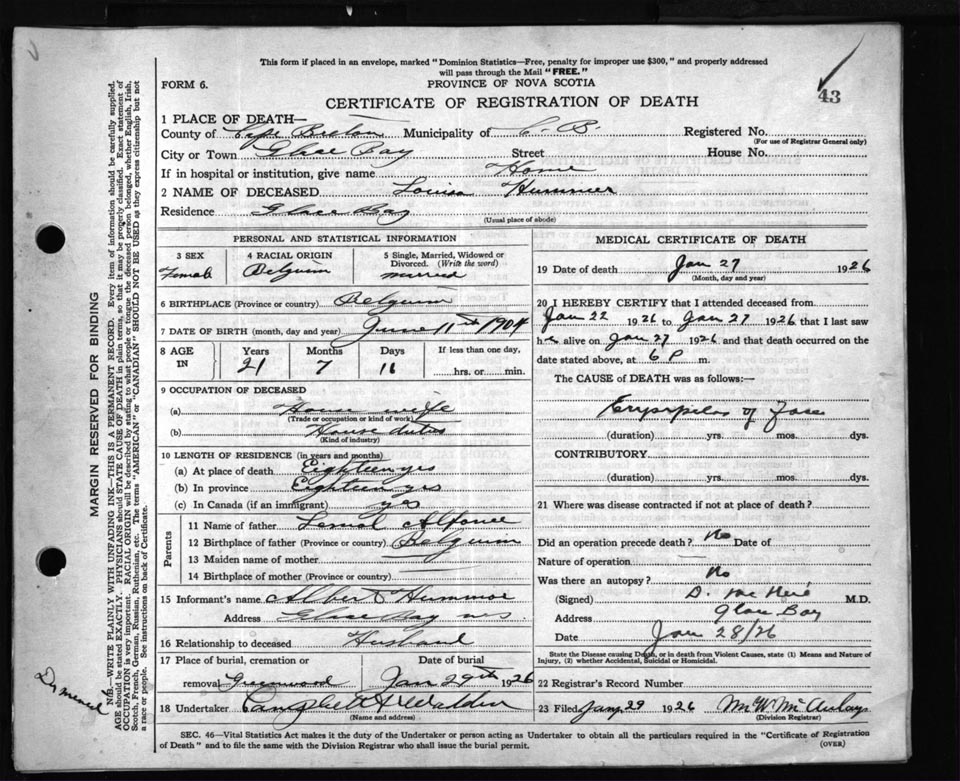 This form if placed in an envelope, marked "Dominion Statistics—Free, penalty for improper use $300," and properly addressed
will pass through the Mail "FREE."
43
FORM 6.
PROVINCE OF NOVA SCOTIA
CERTIFICATE OF REGISTRATION OF DEATH
1 PLACE OF DEATH—
County of Cape Breton Municipality of C. B. Registered No.
(For use of Registrar General only)
City or Town Glace Bay Street House No.
If in hospital or institution, give name Home
2 NAME OF DECEASED Louisa Hummer
Residence Glace Bay
(Usual place of abode)
PERSONAL AND STATISTICAL INFORMATION
3 SEX
Female
4 RACIAL ORIGIN
Belgium
5 Single, Married, Widowed or
Divorced. (Write the word)
married
6 BIRTHPLACE (Province or country) Belgium
7 DATE OF BIRTH (month, day and year) June 11th 1904
8 AGE
IN
Years
21
Months
7
Days
If less than one day,
hrs. or min.
9 OCCUPATION OF DECEASED
(a) House wife
(Trade or occupation or kind of work)
(b) House duties
(Kind of industry)
10 LENGTH OF RESIDENCE (in years and months)
(a) At place of death Eighteen yrs
(b) In province Eighteen yrs
(c) In Canada (if an immigrant) yes
Parents
11 Name of father
12 Birthplace of father (Province or country) Belgium
13 Maiden name of mother
14 Birthplace of mother (Province or country)
15 Informant's name Albert Hummer
Address Glace Bay NS
16 Relationship to deceased Husband
17 Place of burial, cremation or
removal Greenwood
Date of burial
Jan 29th 1926
18 Undertaker Campbell & Walden
(Name and address)
MEDICAL CERTIFICATE OF DEATH
19 Date of death Jan 27 1926
(Month, day and year)
20 I HEREBY CERTIFY that I attended deceased from
Jan 22 1926 to Jan 27 1926 that I last saw
her alive on Jan 27 1926 and that death occurred on the
date stated above, at 6 P m.
The CAUSE OF DEATH was as follows:—
Erysipelas of Face
(duration) yrs. mos. dys.
CONTRIBUTORY
(duration) yrs. mos. dys.
21 Where was disease contracted if not at place of death?
Did an operation precede death? No Date of
Nature of operation
Was there an autopsy? No
(Signed) M.D.
Address Glace Bay
Date Jan 28/26
State the Disease causing Death, or in death from Violent Causes, state (1) Means and Nature of
Injury, (2) whether Accidental, Suicidal or Homicidal.
22 Registrar's Record Number
23 Filed Jany 29 1926 McAulay
(Division Registrar)
SEC. 46—Vital Statistics Act makes it the duty of the Undertaker or person acting as Undertaker to obtain all the particulars required in the "Certificate of Registration
of Death" and to file the same with the Division Registrar who shall issue the burial permit.
(OVER)
MARGIN RESERVED FOR BINDING
N.B.—WRITE PLAINLY WITH UNFADING INK—THIS IS A PERMANENT RECORD. Every item of information should be carefully supplied.
AGE should be stated EXACTLY. PHYSICIANS should STATE CAUSE OF DEATH in plain terms, so that it may be properly classified. Exact statement of
OCCUPATION is very important. RACIAL ORIGIN will be described by stating to what people or tongue the deceased person belonged, whether English, Irish,
Scotch, French, German, Russian, Ruthenian, etc. The terms "AMERICAN" or "CANADIAN" SHOULD NOT BE USED as they express citizenship but not
a race or people. See instructions on back of Certificate.